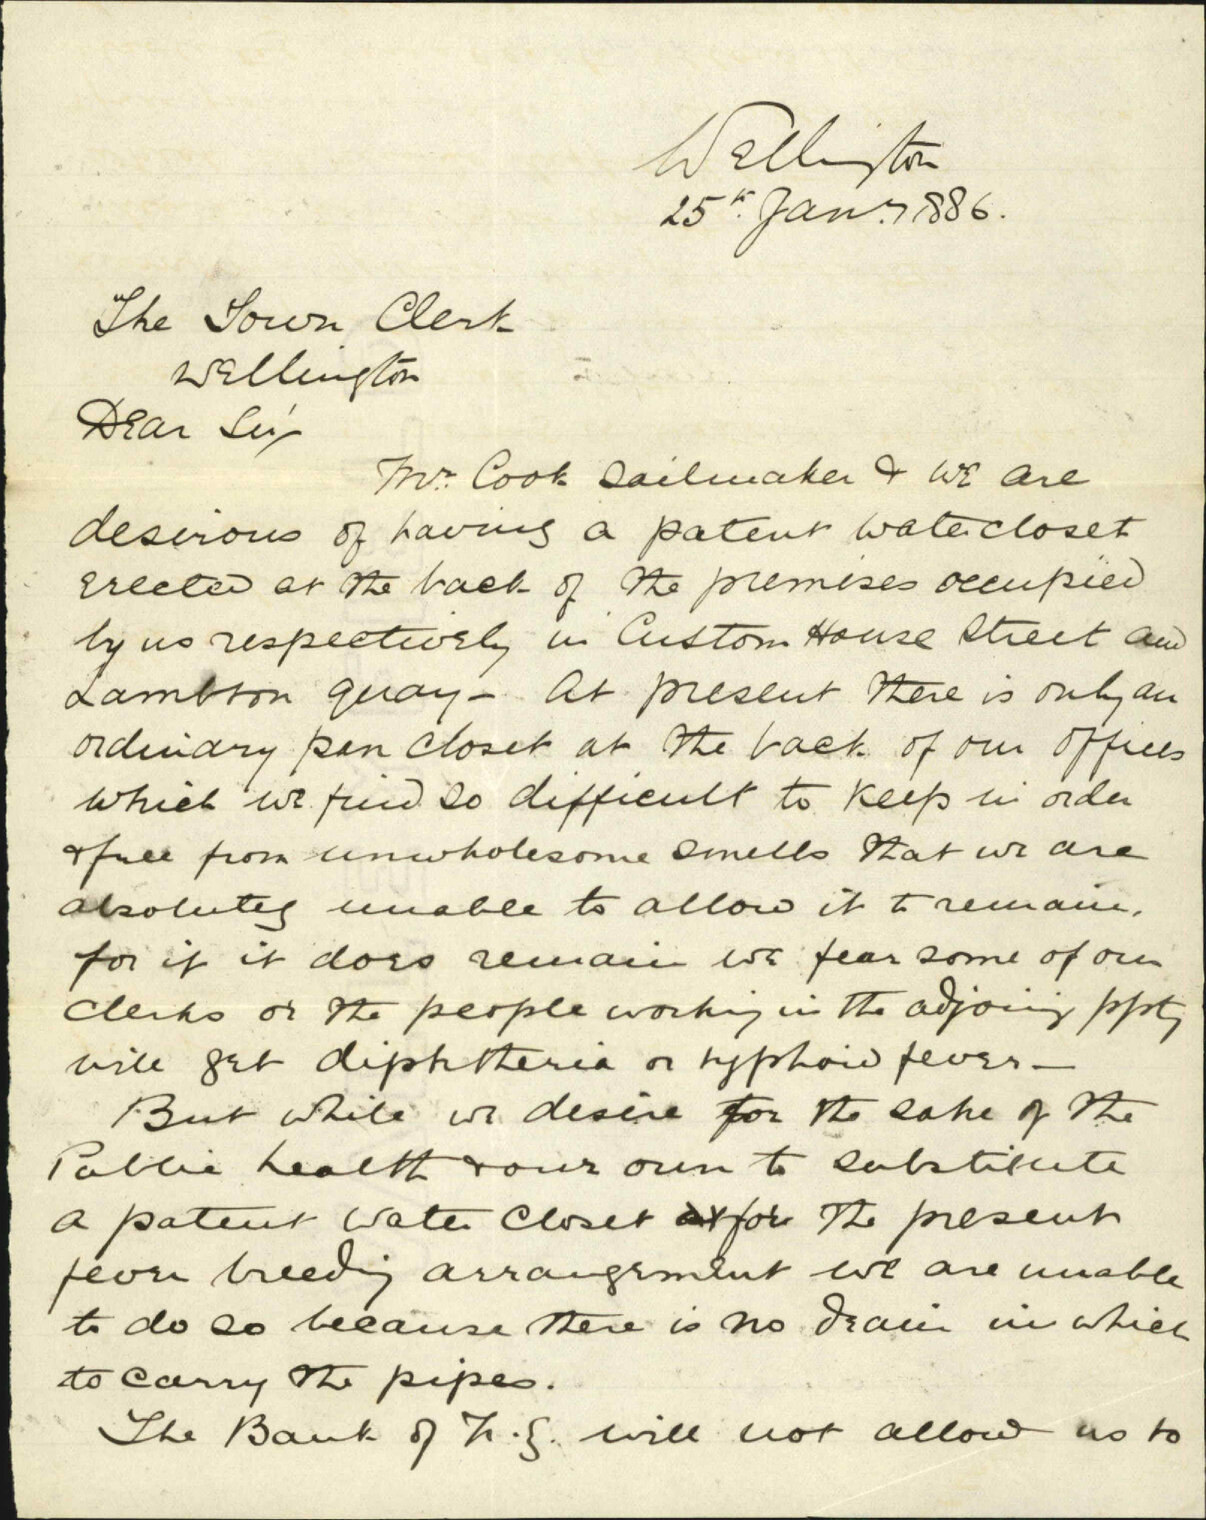 Wellington
25th Jany 1886.
The Town Clerk
Wellington
Dear Sir,
Mr. Cook Sailmaker & we are
desirous of having a patent watercloset
erected at the back of the premises occupied
by us respectively in Custom House Street and
Lambton quay - At present there is only an
ordinary pan closet at the back of our offices
which we find so difficult to keep in order
& free from unwholesome smells that we are
absolutely unable to allow it to remain,
for if it does remain we fear some of our
clerks or the people working in the adjoing ppty
will get diphtheria or typhoid fever -
But while we desire for the sake of the
Public health & our own to substitute
a patent water closet for the present
fever breeding arrangement we are unable
to do so because there is no drain in which
to carry the pipes.
The Bank of N.Z. will not allow us to